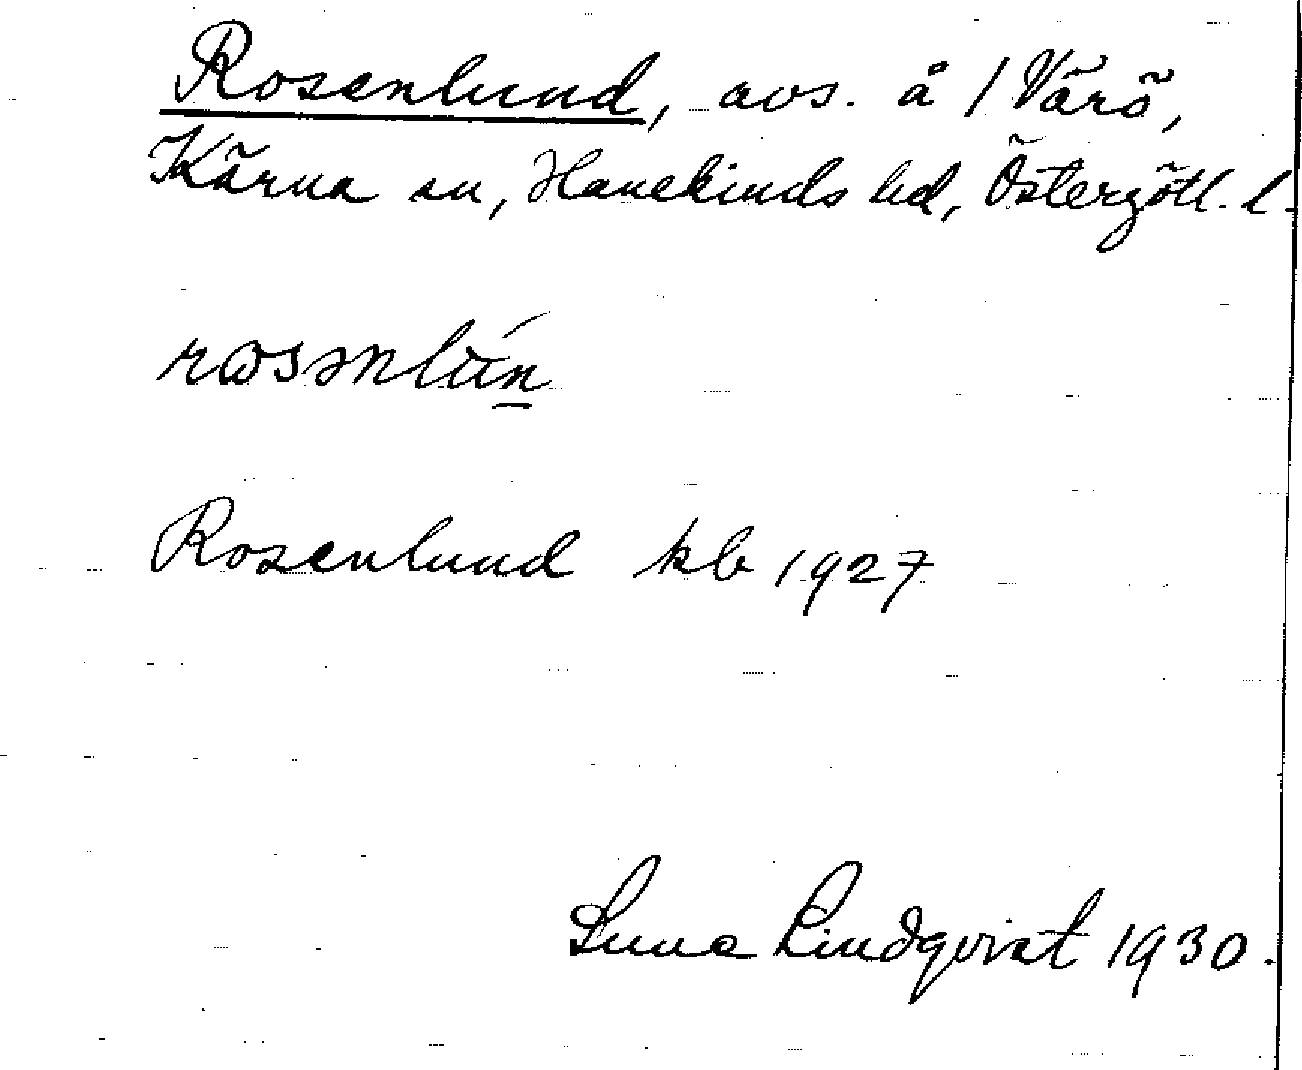 Rosenlund, avs. å 1 Värö,
Kärna sn, Hanekinds hd, Östergötl. l.
Rosenlund kb 1927
Suna Lindqvist 1930.